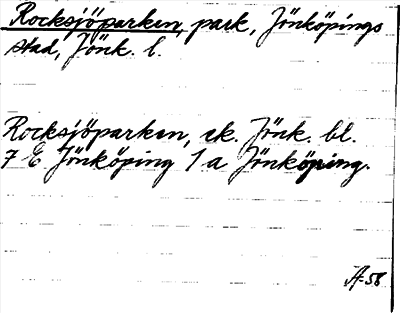 Rocksjöparken, park, Jönköpings
stad, Jönk. l.
Rocksjöparken, ek. Jönk. bl.
7 E Jönköping 1 a Jönköping.
A-58